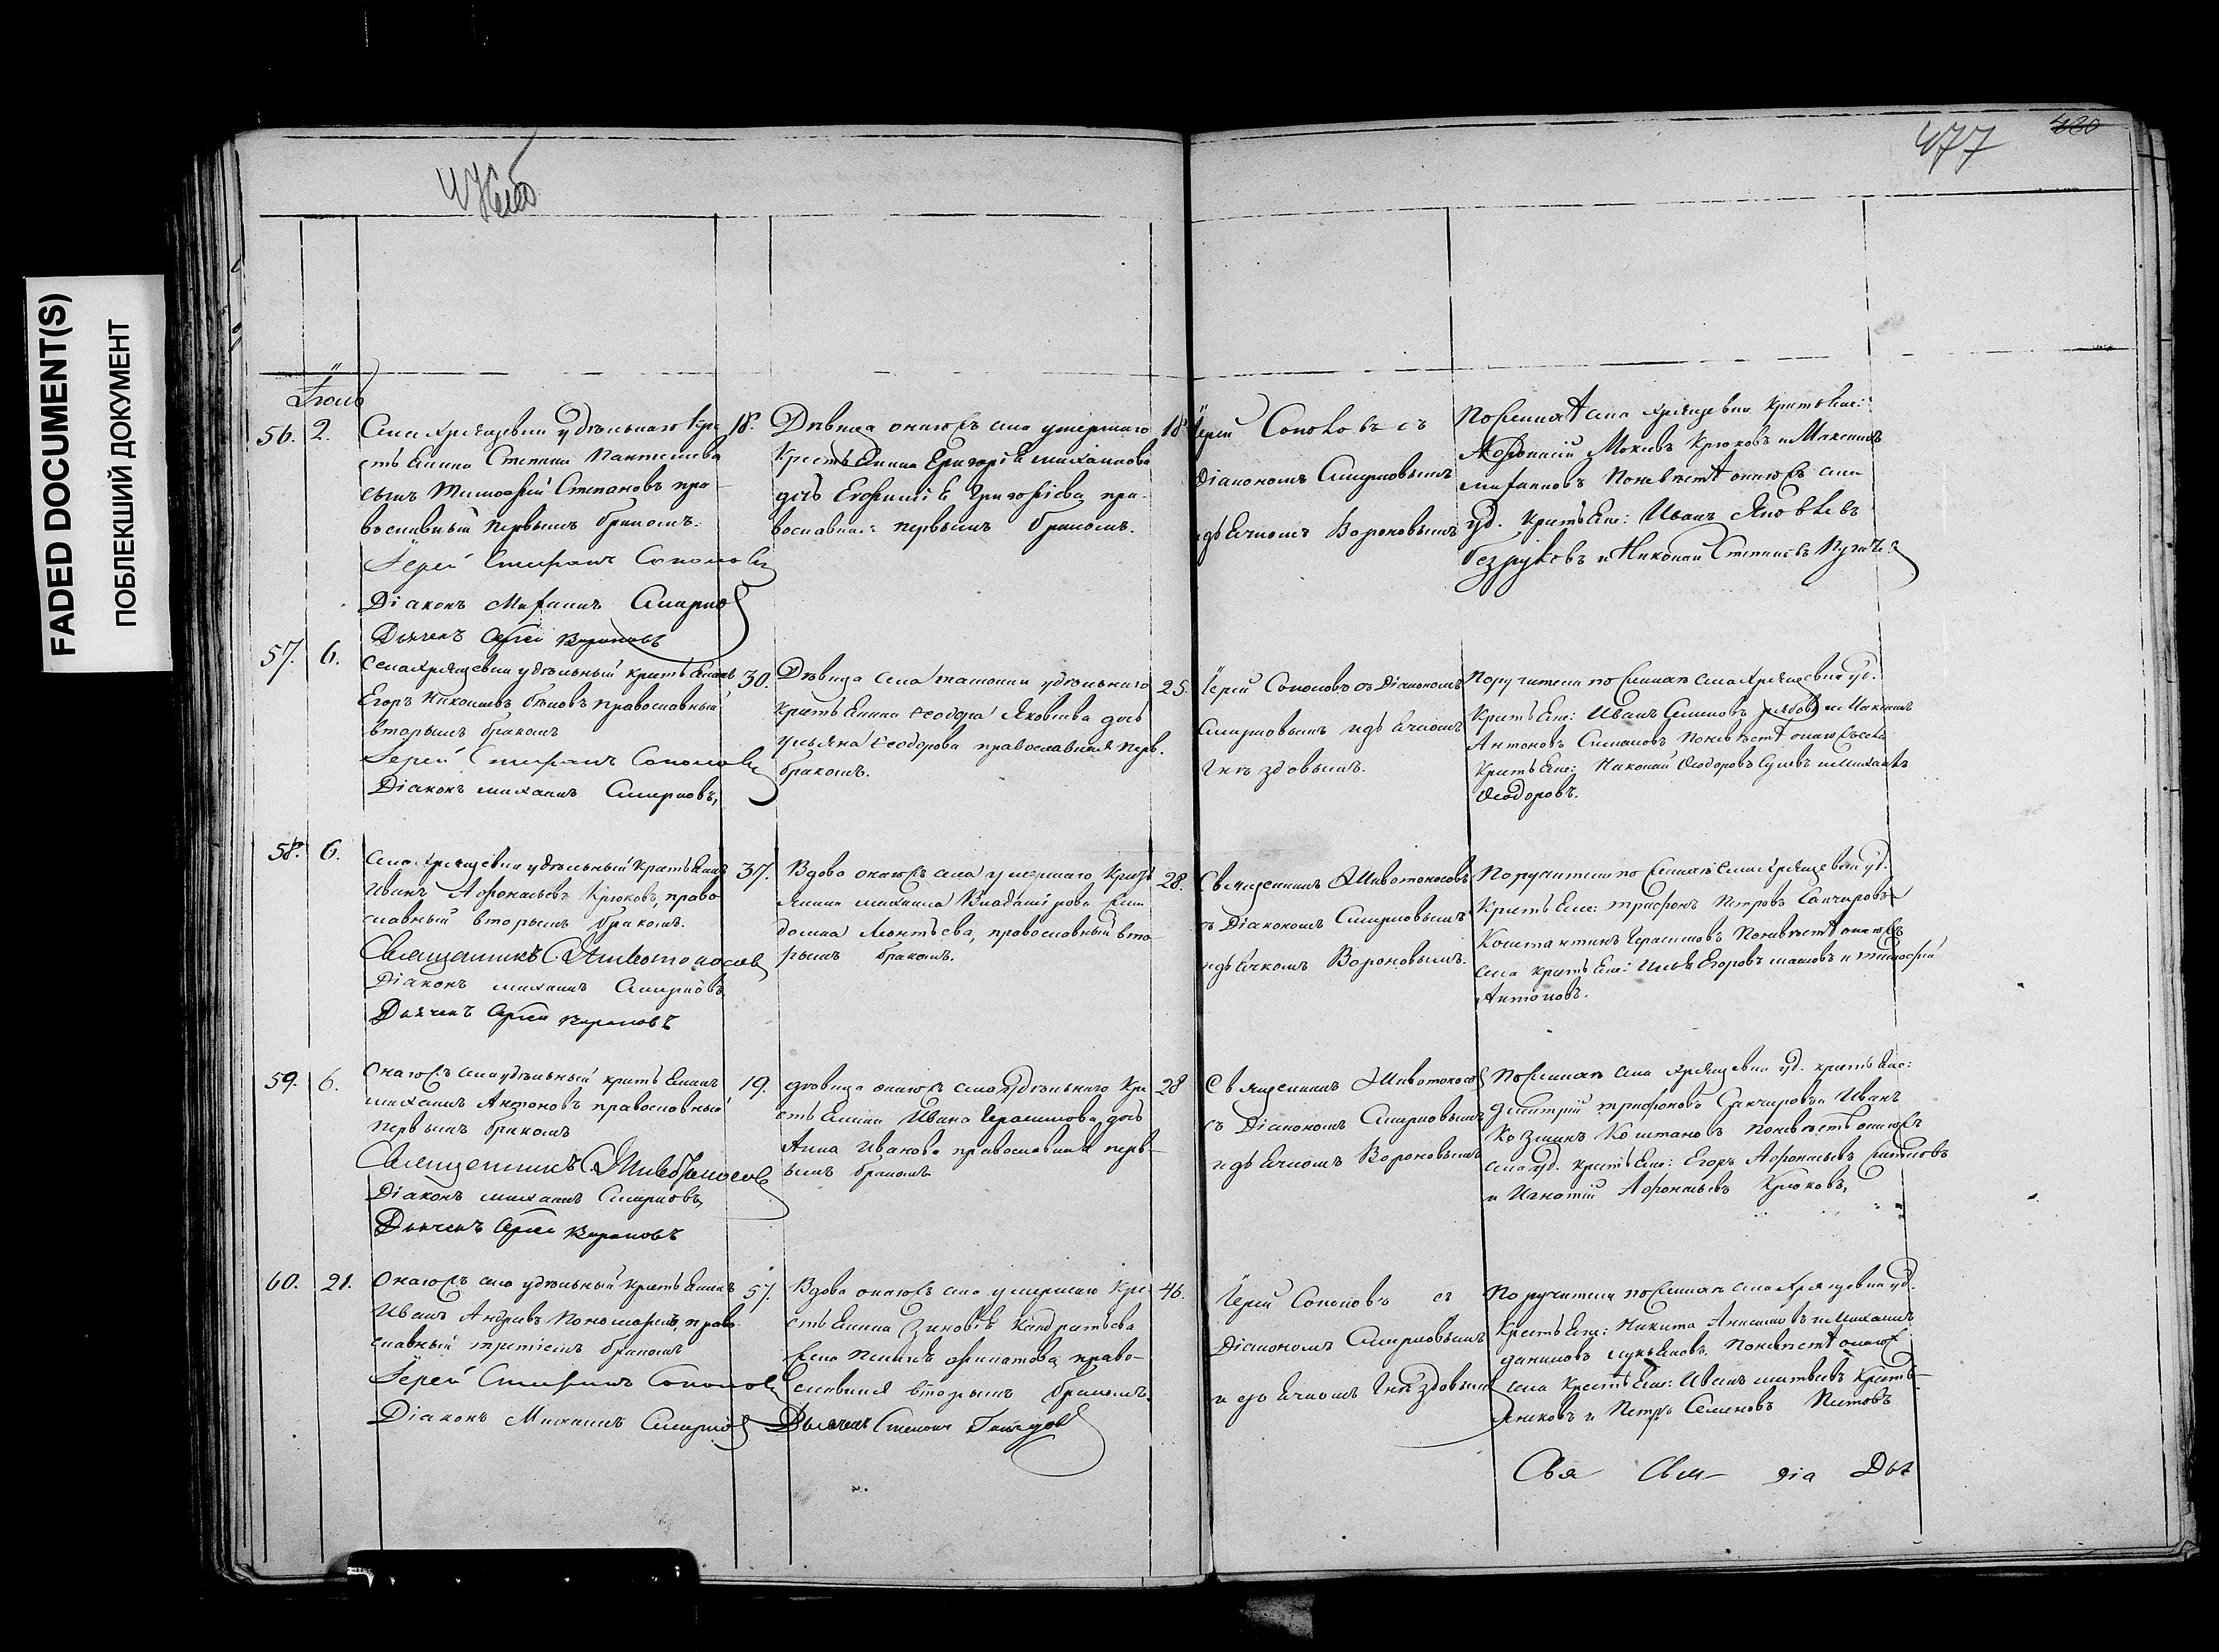 FADED DOCUMENT(S)
ПОБЛЕКШИЙ ДОКУМЕНТ
477
480
Iюль
56. 2.
Села Хрящевки удѣльнаго кре
стьянина Степана Пантелеева
сынъ Тимофей Степановъ пра-
вославный первымъ бракомъ.
Iерей Стефанъ Соколовъ
Дiаконъ Михаилъ Смирновъ
Дьячекъ Сергей Вороновъ
18.
Дѣвица онагожъ села умершаго
крестьянина Григорiя Михаилова
дочь Евфимiя Григорiева, пра-
вославная первымъ бракомъ.
18
Iерей Соколовъ съ
Дiакономъ Смирновымъ
идьячкомъ Вороновымъ
По женихѣ села Хрящевки крестьяне:
Афонасiй Мокiевъ Крюковъ и Максимъ
по невѣстѣ онагожъ села
уд. крестьяне: Иванъ Яковлевъ
Безруковъ и Николай Степановъ
57. 6.
Села Хрящевки удѣльный крестьянинъ
Егоръ Николаевъ Бѣловъ православный
вторымъ бракомъ
Iерей Стефанъ Соколовъ
Дiаконъ Михаилъ Смирновъ,
30.
Дѣвица села Ташолки удѣльнаго
крестьянина Ѳеодора Яковлева дочь
Ульяна Ѳеодорова православная перв.
бракомъ.
25.
Iерей Соколовъ съ Дiакономъ
Смирновымъ идьячкомъ
Гнѣздовымъ.
Поручители по женихѣ села Хрящевки уд.
крестьяне: Иванъ Семеновъ Рябовъ и Максимъ
Антоновъ по невѣстѣ онагожъ села
крестьяне: Николай Ѳеодоровъ и Михаилъ
Ѳеодоровъ.
58. 6.
Села Хрящевки удѣльный крестьянинъ
Иванъ Афонасьевъ Крюковъ, право
славный вторымъ бракомъ.
Священникъ Животоносовъ
Дiаконъ Михаилъ Смирновъ
Дьячекъ Сергей Вороновъ
37.
Вдова онагожъ села умершаго крест
янина Михаила Владимiрова жена
Домна Леонтьева, православный вто
рымъ бракомъ.
28.
Священникъ Животоносовъ
съ Дiакономъ Смирновымъ
идьячкомъ Вороновымъ.
Поручители по женихѣ села Хрящевки уд.
крестьяне: Трифонъ Петровъ Санчировъ и
Константинъ Герасимовъ по невѣстѣ онагожъ
села крестьяне: Илья Егоровъ и Тимофей
Антоновъ.
59. 6.
Онагожъ села удѣльный крестьянинъ
Михаилъ Антоновъ православный
первымъ бракомъ
Священникъ Животоносовъ
Дiаконъ Михаилъ Смирновъ,
Дьячекъ Сергей Вороновъ
19.
Дѣвица онагожъ села удѣльнаго кре
стьянина Ивана Герасимова дочь
Анна Иванова православная перв-
ымъ бракомъ
28
Священникъ Животоносовъ
съ Дiакономъ Смирновымъ
идьячкомъ Вороновымъ
По женихѣ села Хрящевки уд. крестьяне:
Дмитрiй Трифоновъ Санчировъ и Иванъ
Козминъ по невѣстѣ онагожъ
села уд. крестьяне: Егоръ Афонасьевъ
и Игнатiй Афонасьевъ Крюковъ,
60. 21.
Онагожъ села удѣльный крестьянинъ
Иванъ Андреевъ Пономаревъ, право
славный третiимъ бракомъ
Iерей Стефанъ Соколовъ
Дiаконъ Михаилъ Смирновъ
57.
Вдова онагожъ села умершаго кре
стьянина Зиновiя Кандратьева
жена Филатова, право-
славная вторымъ бракомъ.
Дьячекъ Степанъ Гнѣздовъ
46.
Iерей Соколовъ съ
Дiакономъ Смирновымъ
и дьячкомъ Гнѣздовымъ
Поручители по женихѣ села Хрящевки уд.
крестьяне: Никита Анисимовъ и Михаилъ
Даниловъ Лукьяновъ. По невѣстѣ онагож
села крестьяне: Иванъ Матвеевъ
и Петръ Семеновъ
Свя Свм- дiа Дья